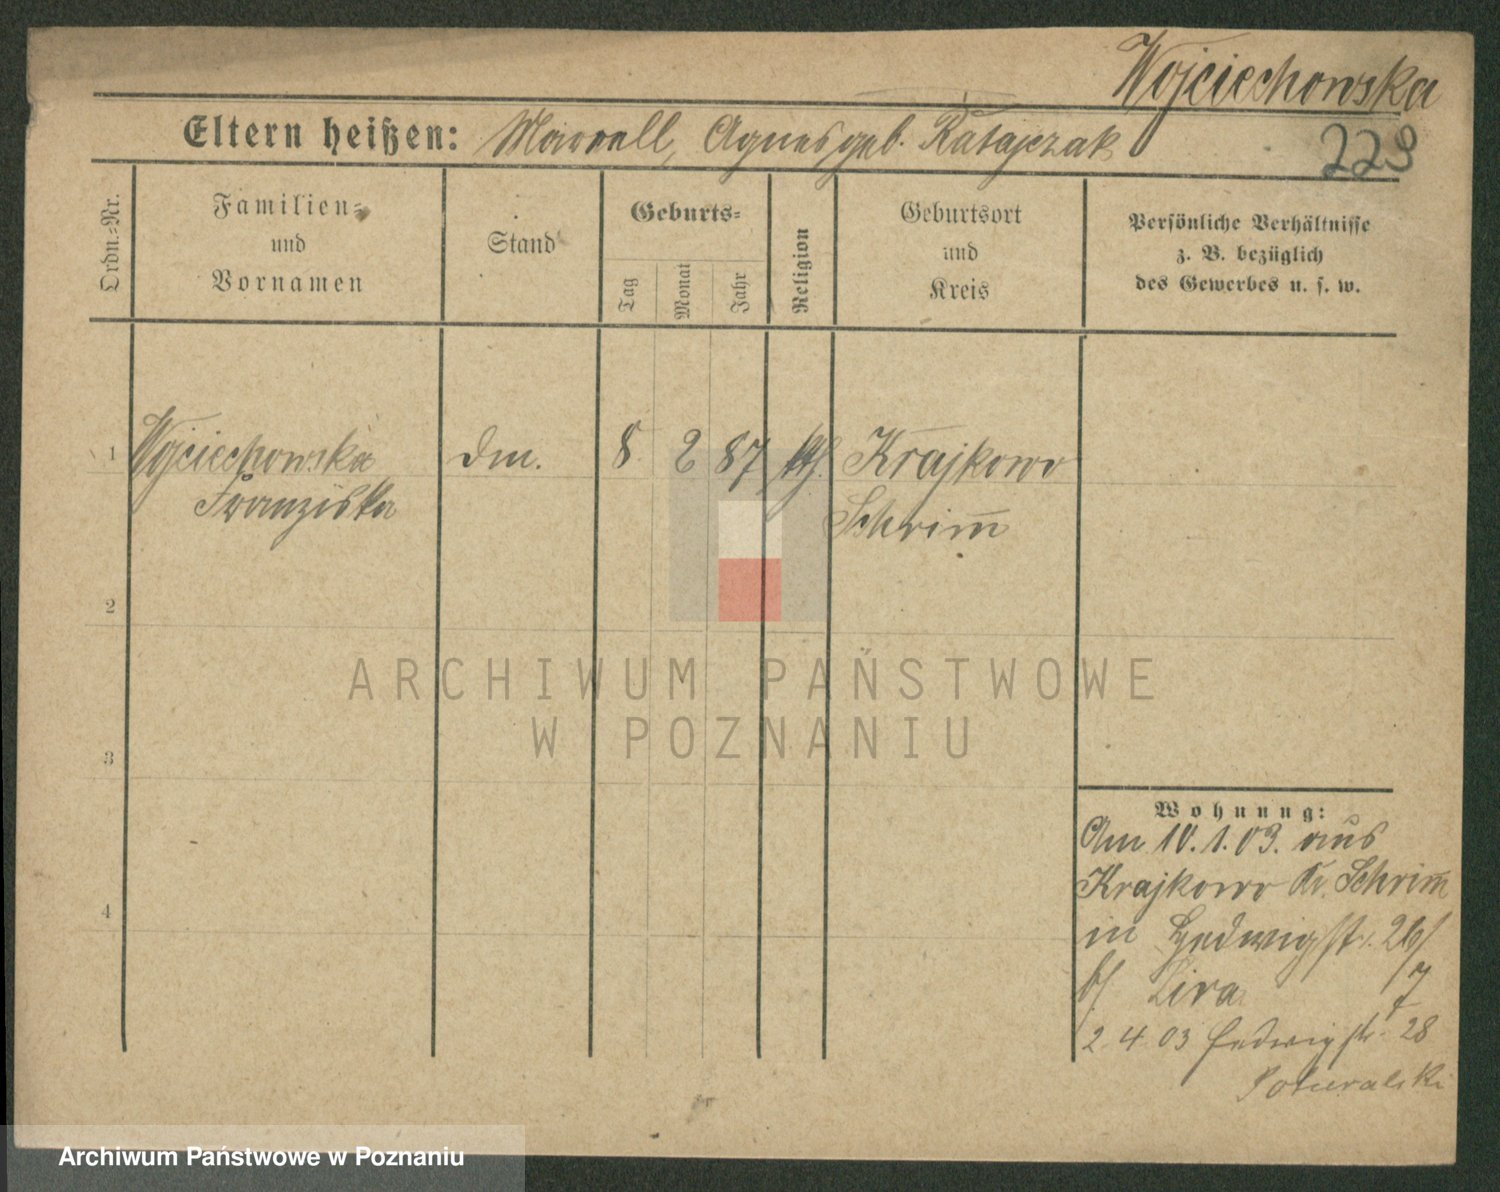 Wojciechowska
Eltern heißen: Marcell, Agnes geb. Ratajczak
229
Ordn.-Nr.
Familien-
und
Vornamen
Stand
Geburts-
Tag
Monat
Jahr
Religion
Geburtsort
und
Kreis
Persönliche Verhältnisse
z. B. bezüglich
des Gewerbes u. s. w.
1 Wojciechowska dm. 8 2 87 kth. Krajkowo
Franziska Schrim̅
2
3
4
Wohnung:
Am 10.1.03. aus
Krajkowo Kr. Schrim̅
in Hedwigstr. 26/
b/ Lira /7
2 4 03 Hedwigstr 28
ARCHIWUM PAŃSTWOWE
W POZNANIU
Archiwum Państwowe w Poznaniu